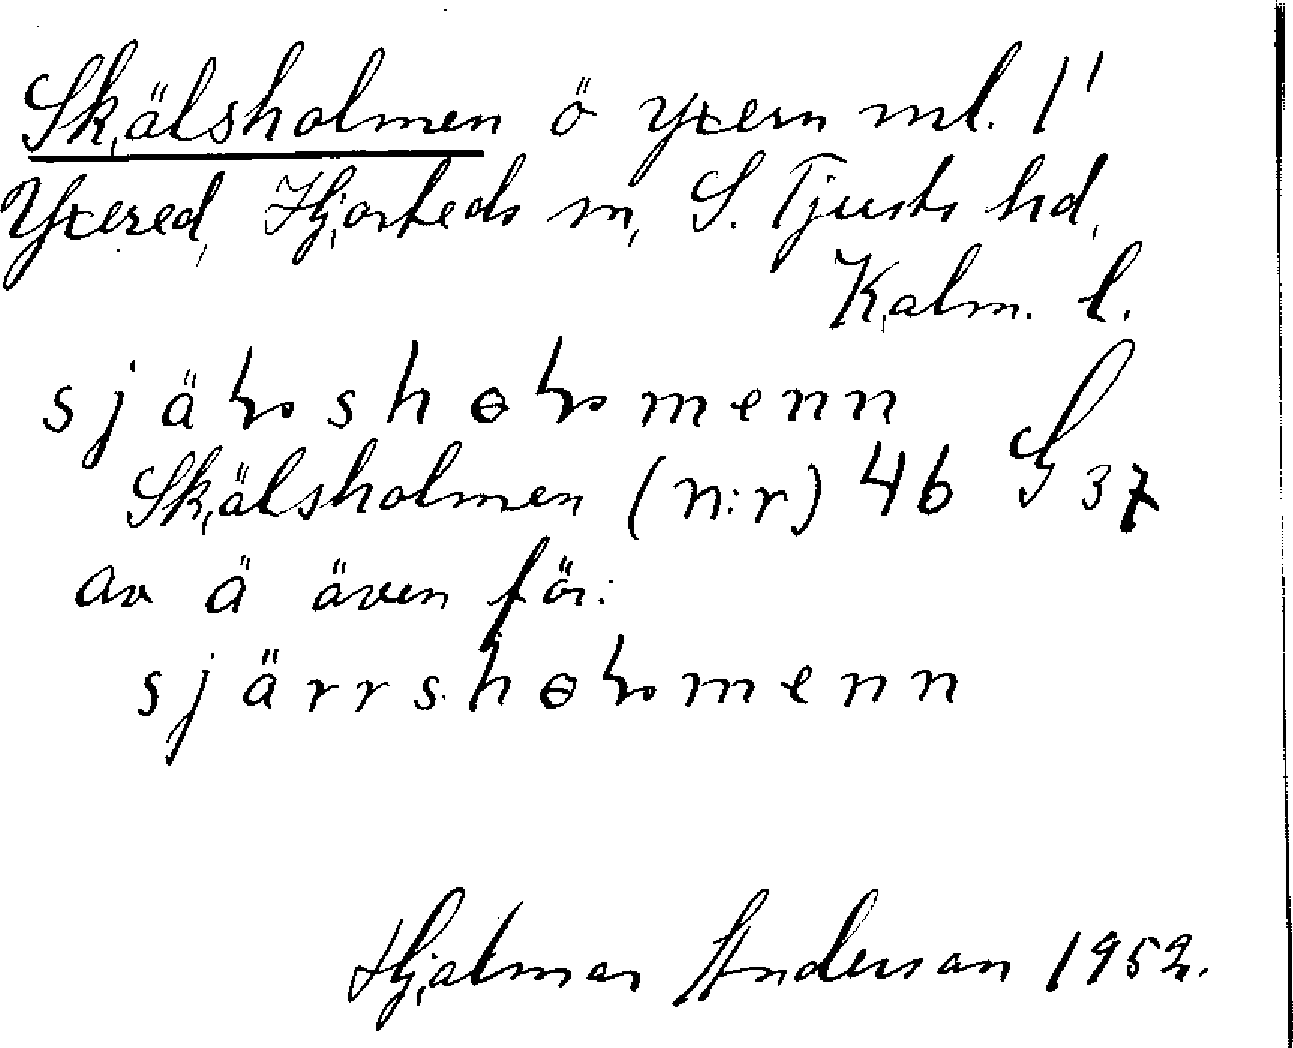 Skälsholmen ö Yxern ml. 1'
Yxered, Hjorteds sn, S. Tjusts hd,
Kalm. l.
sjäɫsshɵɫmenn
Skälsholmen (n:r) 46 G 37
av ä även för:
sjärrshɵɫmenn
Hjalmar Anderson 1952.